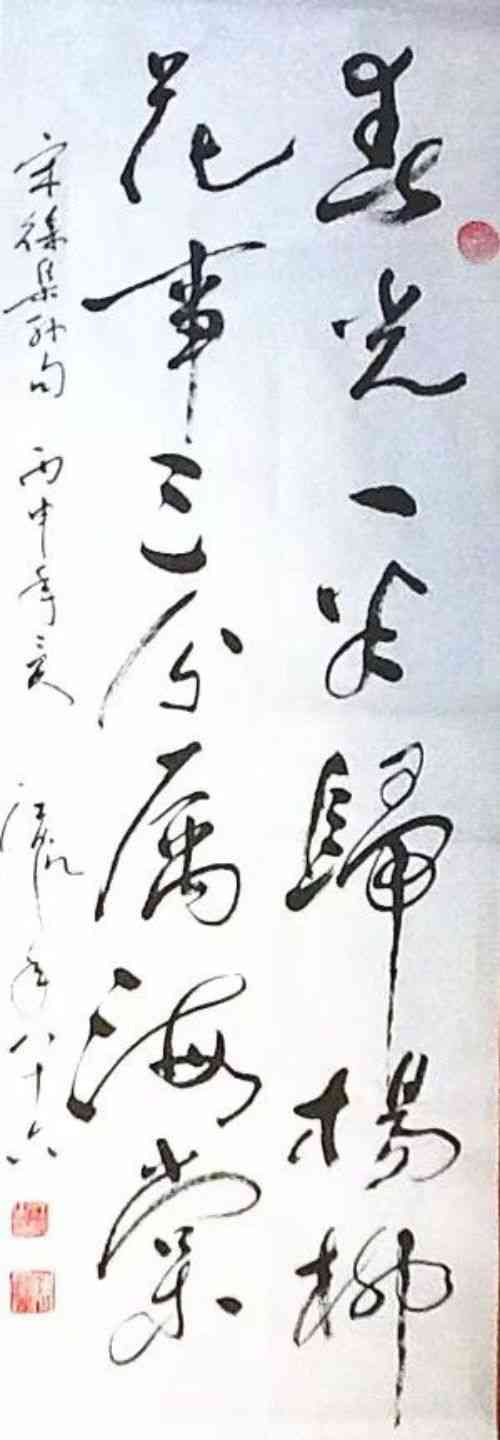 春光一半歸楊柳
花事三分屬海棠
宋徐集孙句 丙申年夏 年八十六